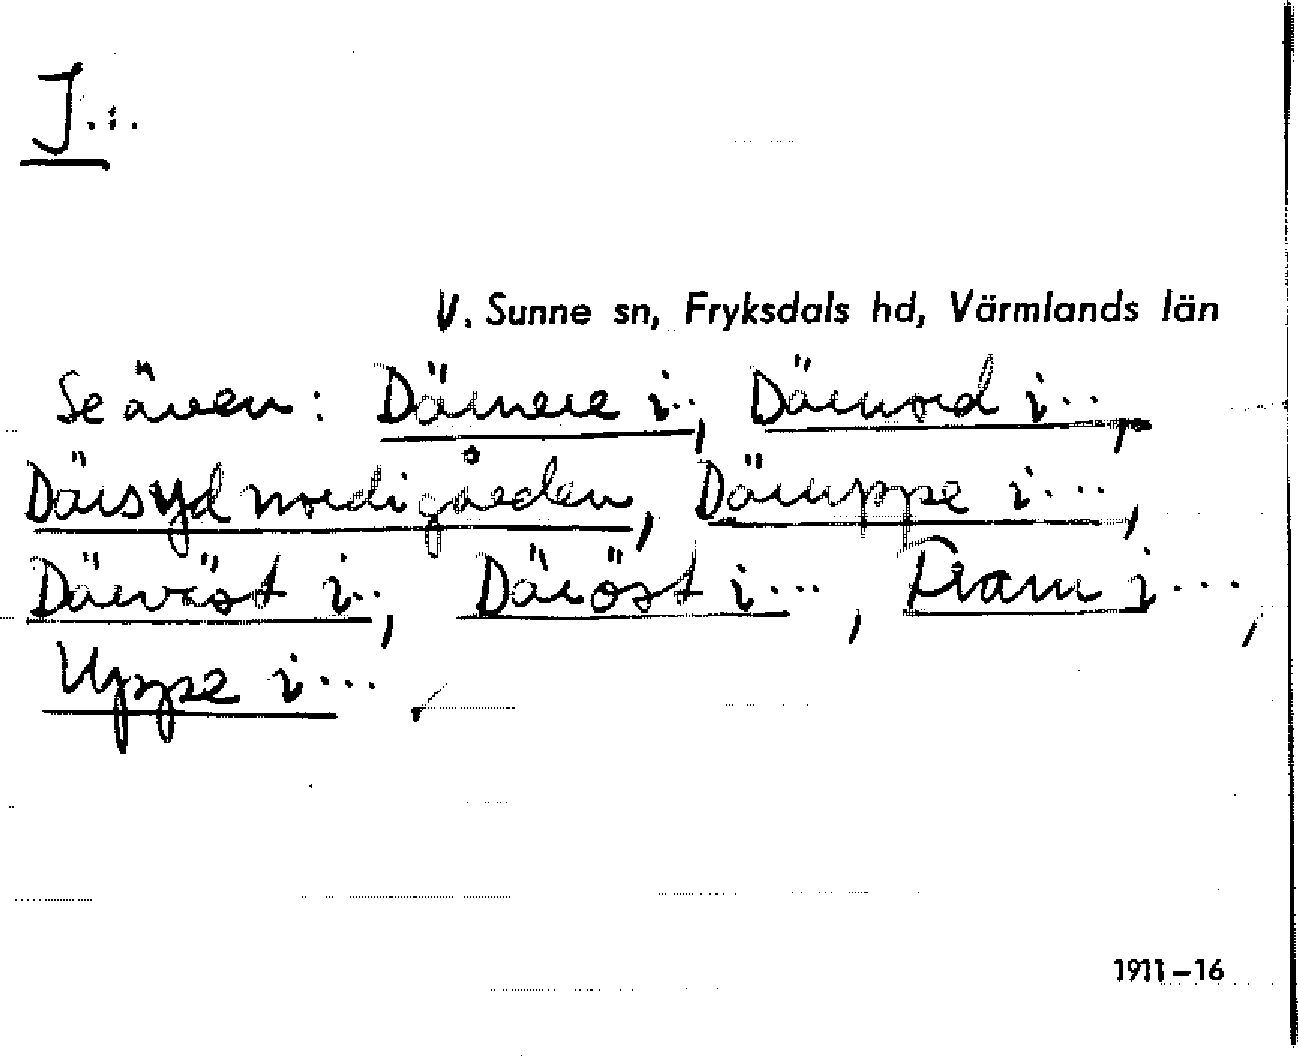 I...
V. Sunne sn, Fryksdals hd, Värmlands län
Se även: Därnere i..., Därnord i...,
Därsyd nordigården, Däruppe i...,
Därväst i..., Däröst i..., Fram i...,
Uppe i...
1911-16